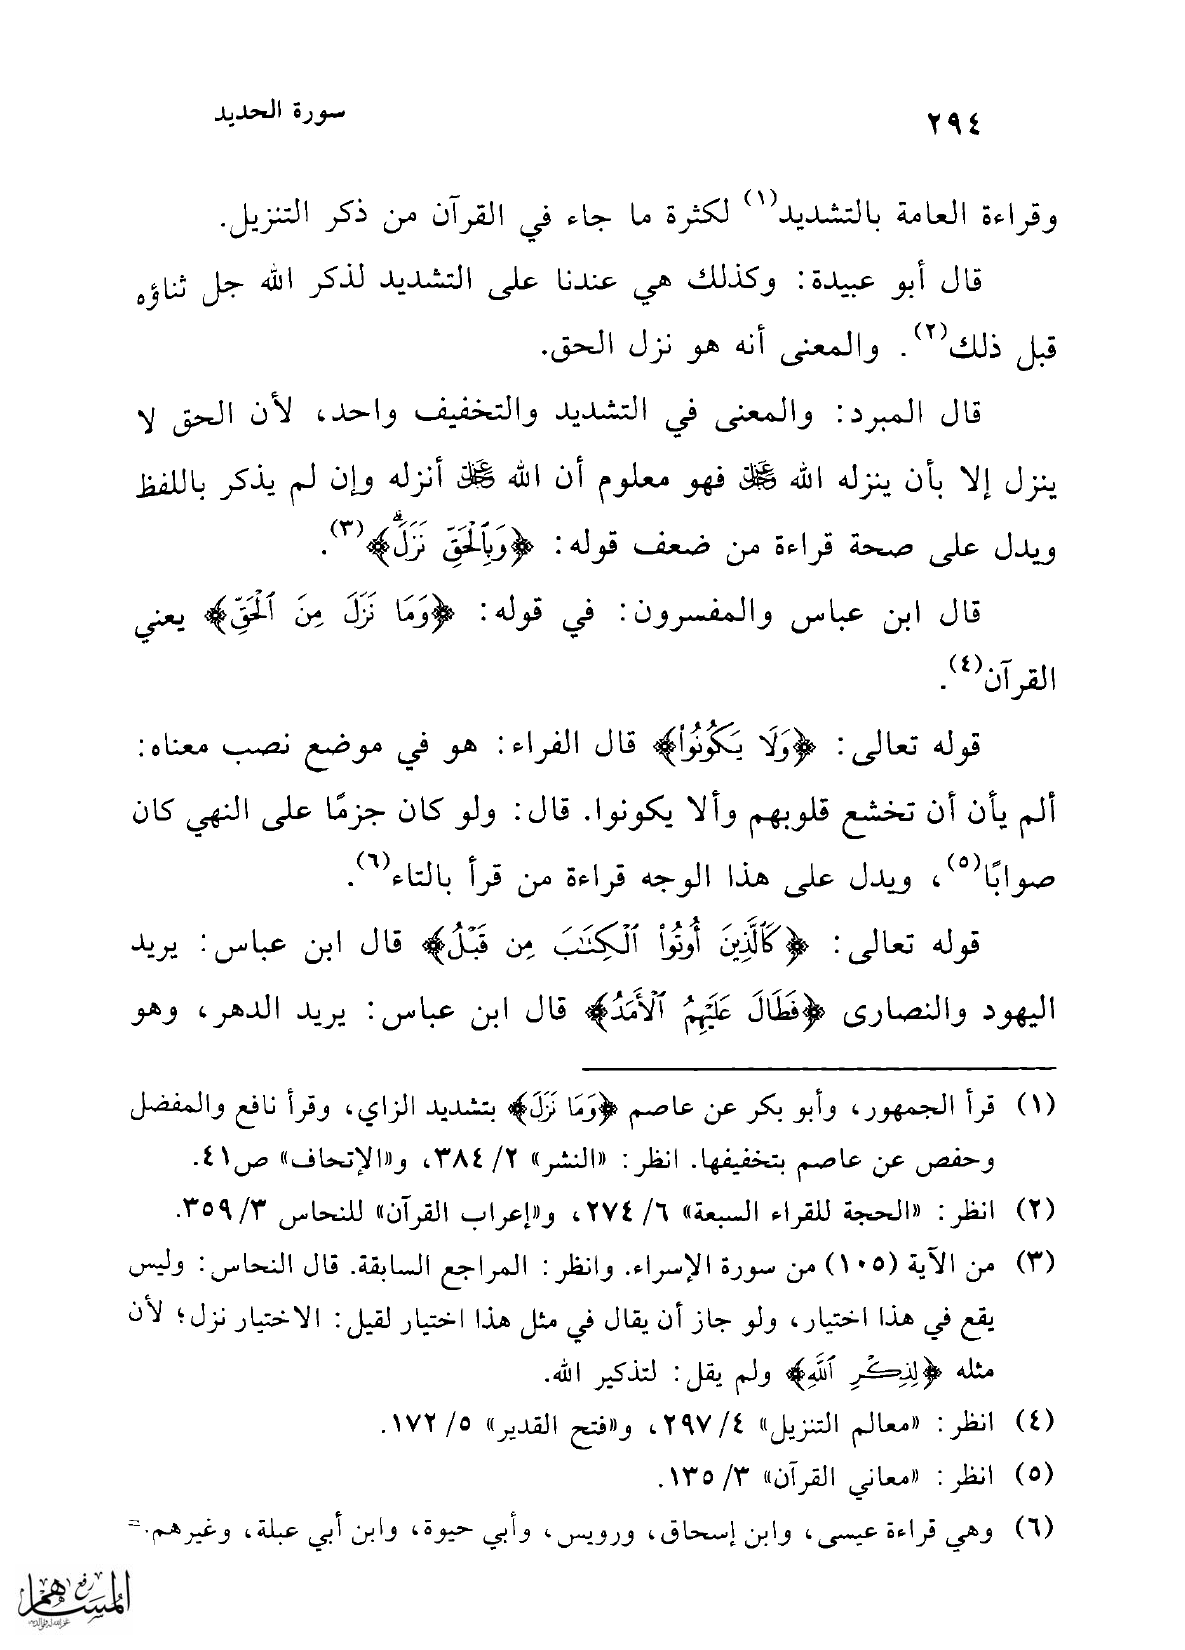 ٢٩٤
سورة الحديد
وقراءة العامة بالتشديد(١) لكثرة ما جاء في القرآن من ذكر التنزيل.
قال أبو عبيدة: وكذلك هي عندنا على التشديد لذكر الله جل ثناؤه
قبل ذلك(٢). والمعنى أنه هو نزل الحق.
قال المبرد: والمعنى في التشديد والتخفيف واحد، لأن الحق لا
ينزل إلا بأن ينزله الله عز وجل فهو معلوم أن الله عز وجل أنزله وإن لم يذكر باللفظ
ويدل على صحة قراءة من ضعف قوله: ﴿وَبِٱلۡحَقِّ نَزَلَۗ﴾(٣).
قال ابن عباس والمفسرون: في قوله: ﴿وَمَا نَزَلَ مِنَ ٱلۡحَقِّ﴾ يعني
القرآن(٤).
قوله تعالى: ﴿وَلَا يَكُونُواْ﴾ قال الفراء: هو في موضع نصب معناه:
ألم يأن أن تخشع قلوبهم وألا يكونوا. قال: ولو كان جزمًا على النهي كان
صوابًا(٥)، ويدل على هذا الوجه قراءة من قرأ بالتاء(٦).
قوله تعالى: ﴿كَٱلَّذِينَ أُوتُواْ ٱلۡكِتَٰبَ مِن قَبۡلُ﴾ قال ابن عباس: يريد
اليهود والنصارى ﴿فَطَالَ عَلَيۡهِمُ ٱلۡأَمَدُ﴾ قال ابن عباس: يريد الدهر، وهو
(١) قرأ الجمهور، وأبو بكر عن عاصم ﴿وَمَا نَزَلَ﴾ بتشديد الزاي، وقرأ نافع والمفضل
وحفص عن عاصم بتخفيفها. انظر: «النشر» ٢/ ٣٨٤، و«الإتحاف» ص٤١.
(٢) انظر: «الحجة للقراء السبعة» ٦/ ٢٧٤، و«إعراب القرآن» للنحاس ٣/ ٣٥٩.
(٣) من الآية (١٠٥) من سورة الإسراء. وانظر: المراجع السابقة. قال النحاس: وليس
يقع في هذا اختيار، ولو جاز أن يقال في مثل هذا اختيار لقيل: الاختيار نزل؛ لأن
مثله ﴿لِذِكۡرِ ٱللَّهِ﴾ ولم يقل: لتذكير الله.
(٤) انظر: «معالم التنزيل» ٤/ ٢٩٧، و«فتح القدير» ٥/ ١٧٢.
(٥) انظر: «معاني القرآن» ٣/ ١٣٥.
(٦) وهي قراءة عيسى، وابن إسحاق، ورويس، وأبي حيوة، وابن أبي عبلة، وغيرهم.=
رفع
المساهم